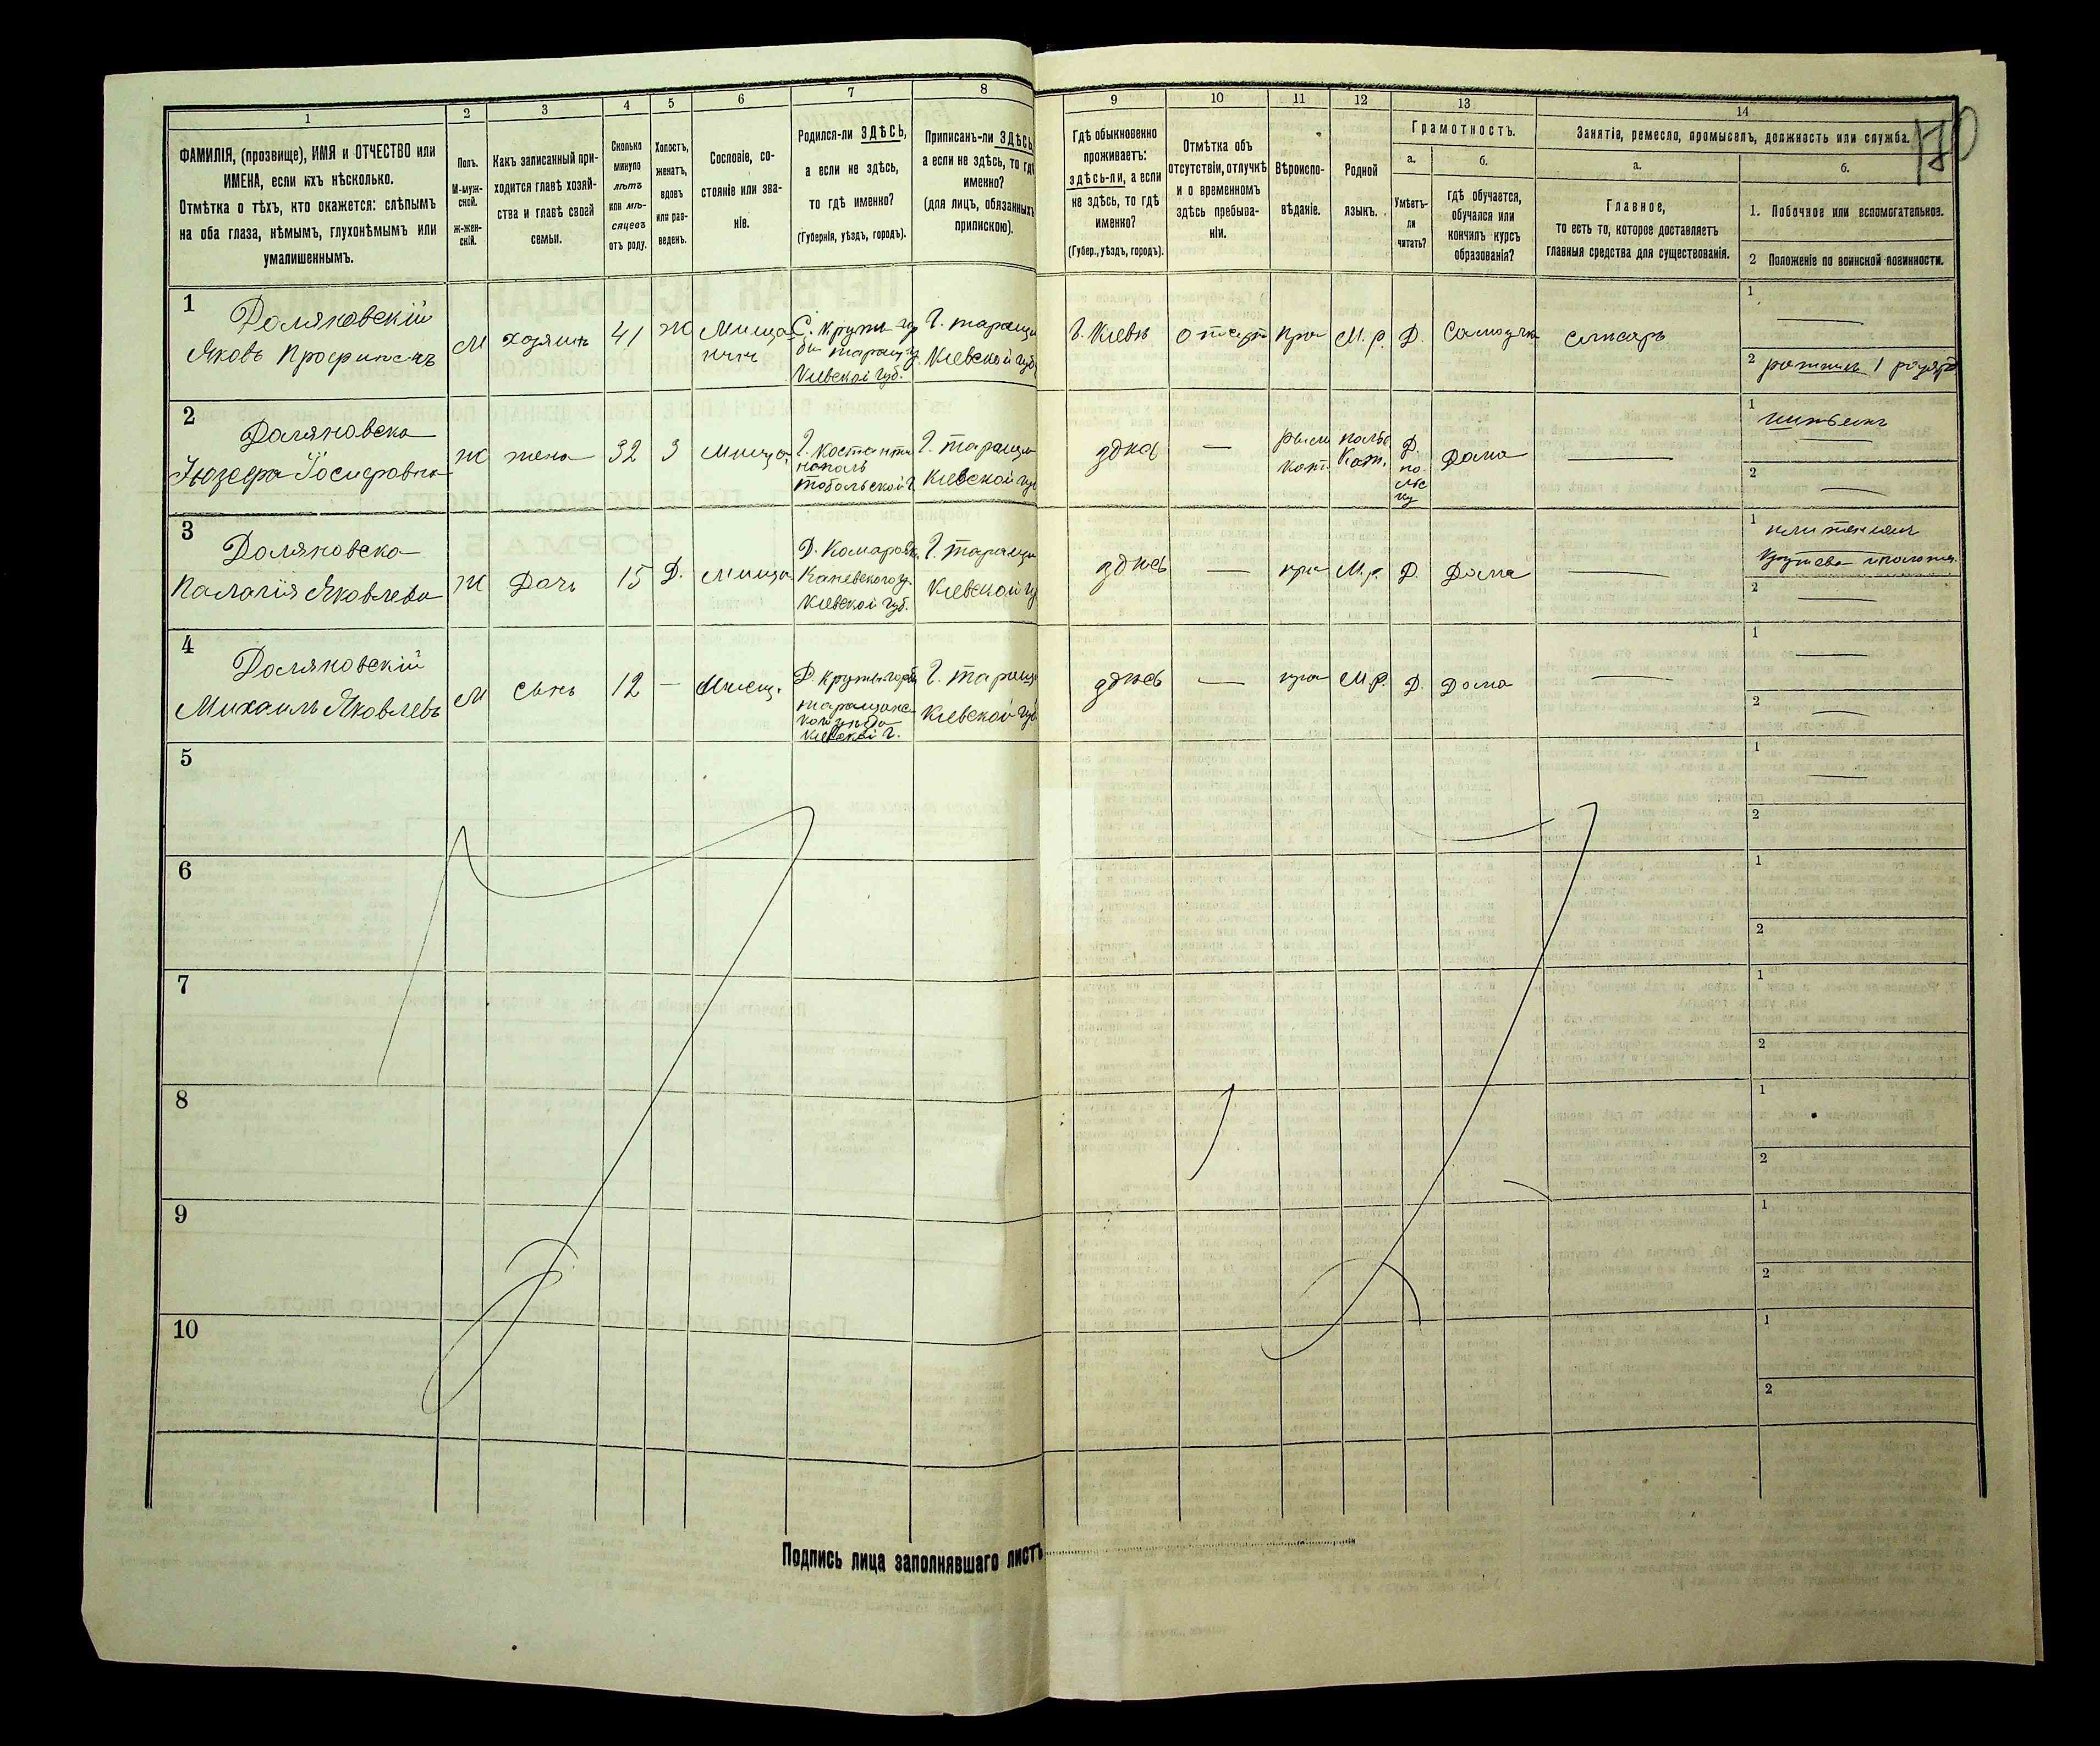 1
ФАМИЛІЯ, (прозвище), ИМЯ и ОТЧЕСТВО или
ИМЕНА, если ихъ нѣсколько.
Отмѣтка о тѣхъ, кто окажется: слѣпымъ
на оба глаза, нѣмымъ, глухонѣмымъ или
умалишеннымъ.
2
Полъ.
М-муж-
ской.
Ж-жен-
скій.
3
Какъ записанный при-
ходится главѣ хозяй-
ства и главѣ своей
семьи.
4
Сколько
минуло
лѣтъ
или мѣ-
сяцевъ
отъ роду.
5
Холостъ,
женатъ,
вдовъ
или раз-
веденъ.
6
Сословіе, со-
стояніе или зва-
ніе.
7
Родился-ли ЗДѢСЬ,
а если не здѣсь,
то гдѣ именно?
(Губернія, уѣздъ, городъ).
8
Приписанъ-ли ЗДѢСЬ,
а если не здѣсь, то гдѣ
именно?
(для лицъ, обязанныхъ
припискою).
9
Гдѣ обыкновенно
проживаетъ:
здѣсь-ли, а если
не здѣсь, то гдѣ
именно?
(Губер., уѣздъ, городъ).
10
Отмѣтка объ
отсутствіи, отлучкѣ
и о временномъ
здѣсь пребыва-
ніи.
11
Вѣроиспо-
вѣданіе.
12
Родной
языкъ.
13
Грамотность.
а.
Умѣетъ-
ли
читать?
б.
Гдѣ обучается,
обучался или
кончилъ курсъ
образованія?
14
Занятіе, ремесло, промыселъ, должность или служба.
а.
Главное,
то есть то, которое доставляетъ
главныя средства для существованія.
б.
1. Побочное или вспомогательное.
2 Положеніе по воинской повинности.
170
1
Доляновскій
Яковъ
М
хозяинъ
41
Ж
Мѣща-
С.
Кіевской губ.
Г. Таращи
Кіевской губ
Г. Кіевъ
отсут
пра
М. р.
Д.
Самоучка
слесарь
1
2 ратникъ 1 разряд
2
Доляновска
Юзефа Іосифовна
Ж
жена
32
З
Мѣща.
Тобольской Г.
Г. Таращи
Кіевской губ
здѣсь
—
римс
кат.
поль
Кат.
Д.
по
льс
ку
Дома
—
1
2
3
Доляновска
Палагія Яковлева
Ж
Дочь
15
Д.
Мѣща
Д. Комаровк.
Каневского у.
Кіевской губ.
Г. Таращи
Кіевской гу
здѣсь
—
пра
М. р.
Д.
Дома
—
1
2
4
Доляновскій
Михаилъ Яковлевъ
М
Сынъ
12
—
Мѣщ.
Кіевской Г.
Г. Таращи
Кіевской губ
здѣсь
—
пра
М. р.
Д.
Дома
—
1
2
5
1
2
6
1
2
7
1
2
8
1
2
9
1
2
10
1
2
Подпись лица заполнявшаго листъ